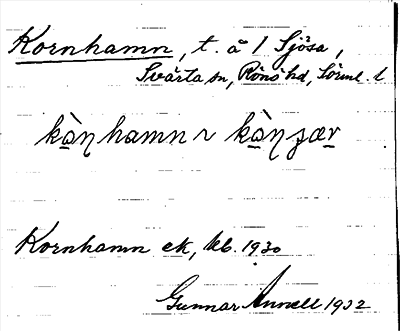 Kornhamn, t. å / Sjösa,
Svärta sn, Rönö hd, Sörml. l
kà̠ŋhamn ~ kà̠ŋʒær̠
Kornhamn ek, kb. 1930
Gunnar Annell 1932